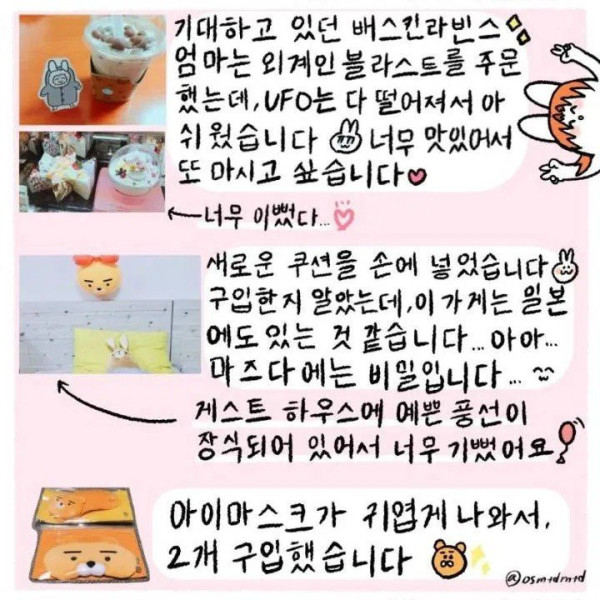 기대하고 있던 배스킨라빈스
엄마는 외계인 블라스트를 주문
했는데, UFO는 다 떨어져서 아
쉬웠습니다 너무 맛있어서
또 마시고 싶습니다
너무 이뻤다...
새로운 쿠션을 손에 넣었습니다
구입한지 알았는데, 이 가게는 일본
에도 있는 것 같습니다... 아아...
마즈다에는 비밀입니다...
게스트 하우스에 예쁜 풍선이
장식되어 있어서 너무 기뻤어요
아이마스크가 귀엽게 나와서,
2개 구입했습니다
@osmtdmtd